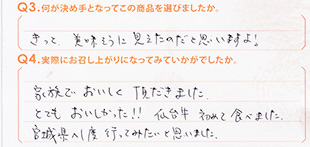 Q3.何が決め手となってこの商品を選びましたか。
きって、美味そうに見えたのだと思いますよ!
Q4.実際にお召し上がりになってみていかがでしたか。
家族で おいしく 頂だきました。
とても おいしかった!! 仙台牛 初めて食べました。
宮城県へ1度行ってみたいと思いました。